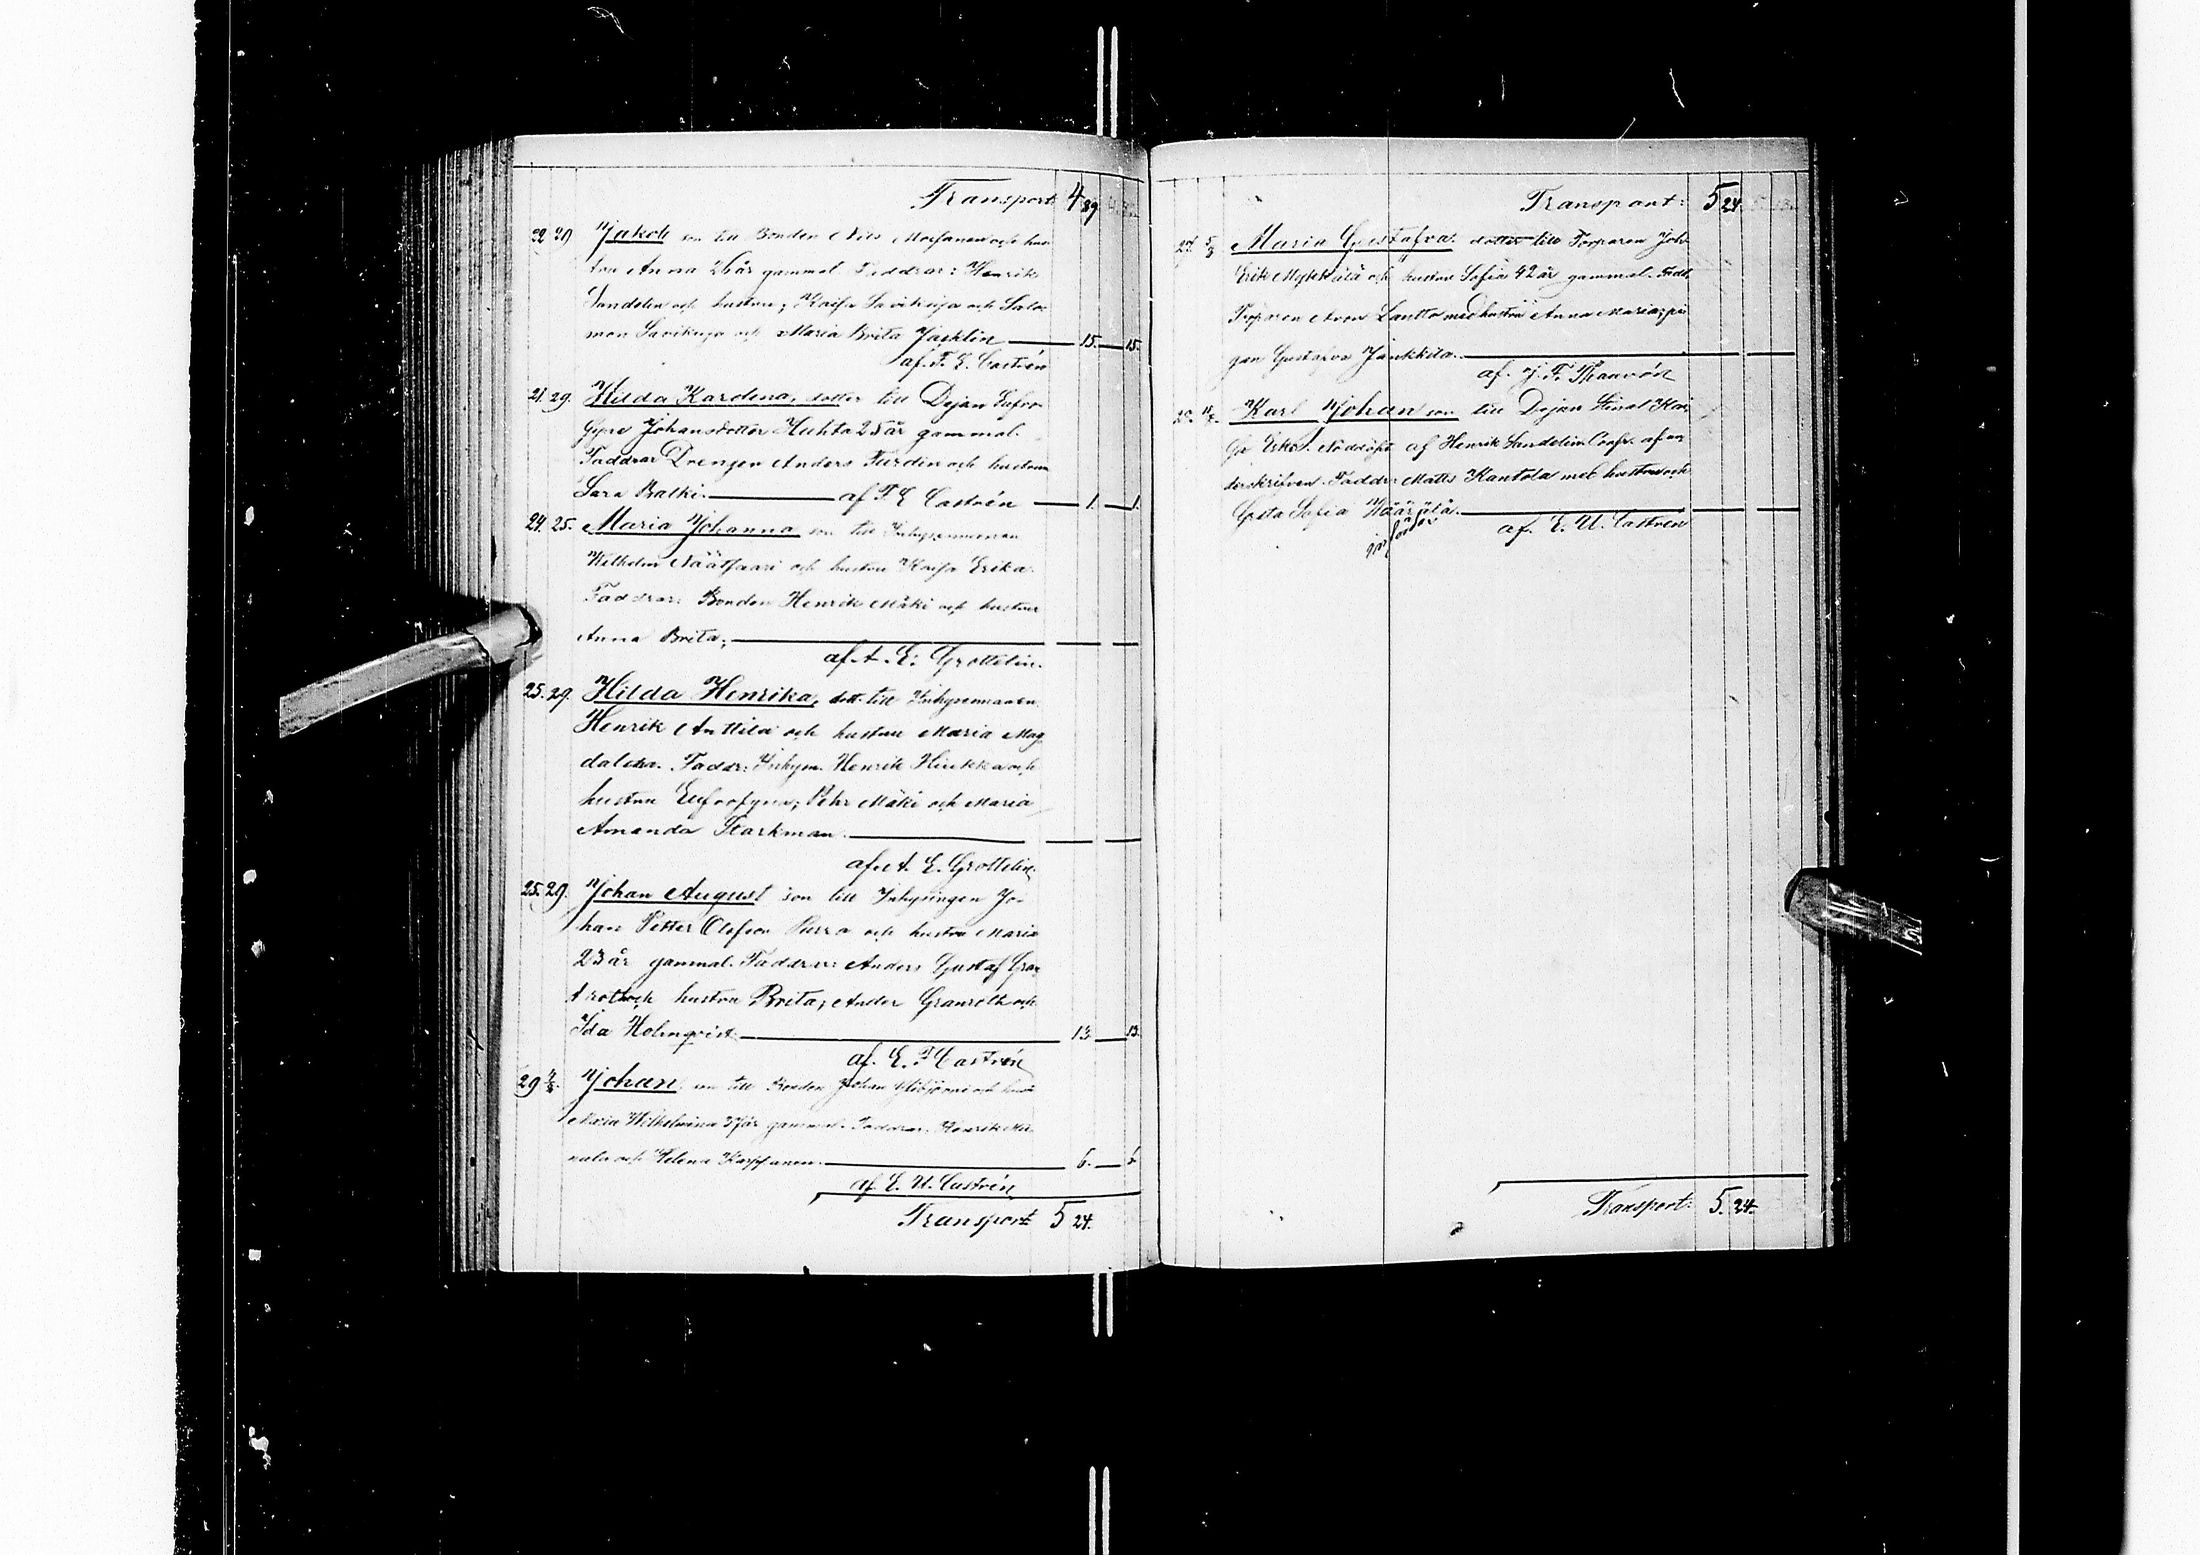 Transport: 4 89
22 29 Jakob son till Bonden Nils och hus-
tru Anna 26 år gammal. Faddrar: Henrik
Sandelin och hustru; Kaisa Savikuja och Salo-
mon Savikuja och Maria Brita Jäsklin 15. 15.
af. F. E. Castrén
21. 29. Hilda Karolina, dotter till Dejan Eufro-
Johansdotter Huhta 25 år gammal.
Faddrar Drengen Anders Turdin och hustrun
Sara Ralki. af F. E Castrén 1. 1.
24. 25. Maria Johanna son till Inhysesmannen
Wilhelm Näätsaari och hustru Kaisa Erika.
Faddrar: Bonden Henrik Mäki och hustrun
Anna Brita,
af. A. E. Grottelin.
25. 29. Hilda Henrika, dott. till Inhysesmannen
Henrik Anttila och hustru Maria Mag
dalena. Faddr: Inhysm. Henrik och
hustru Eufrosyna; Pehr Mäki och Maria
Amanda Starkman.
af. A. E. Grottelin.
25. 29. Johan August son till Inhysingen Jo-
han Petter Olofson Purra och hustru Maria
23 år gammal. Faddrar: Anders Gustaf Gra-
roth och hustru Brita; Ander Granroth och
Ida Holmqvist 13. 13.
af. E. F. Castrén
29 Johan son till Bonden Johan och hustr
Maria Wilhelmina 37 år gammal. Faddrar. Henrik
och Helena Karppanen. 6. 6
af E. U. Castrén
Transport 5 24.
Transport: 5 24.
27. 5/3 Maria Gustafva. dotter till Torparen Joh.
Erik Mykkälä och hustru Sofia 42 år gammal. Fadd.
Torparen Aron Lantto med hustru Anna Maria; pi-
gan Gustafva Jänkkilä.
af. J. F. Thauvón
Karl Johan son till Dejan
Nöddöpt af Henrik Sandelin Confr. af un
derskrifven. Faddr: Matts Kantola med hustru och
Greta Sofia Määrälä.
införder af. E. U. Castrén
Transport: 5. 24.